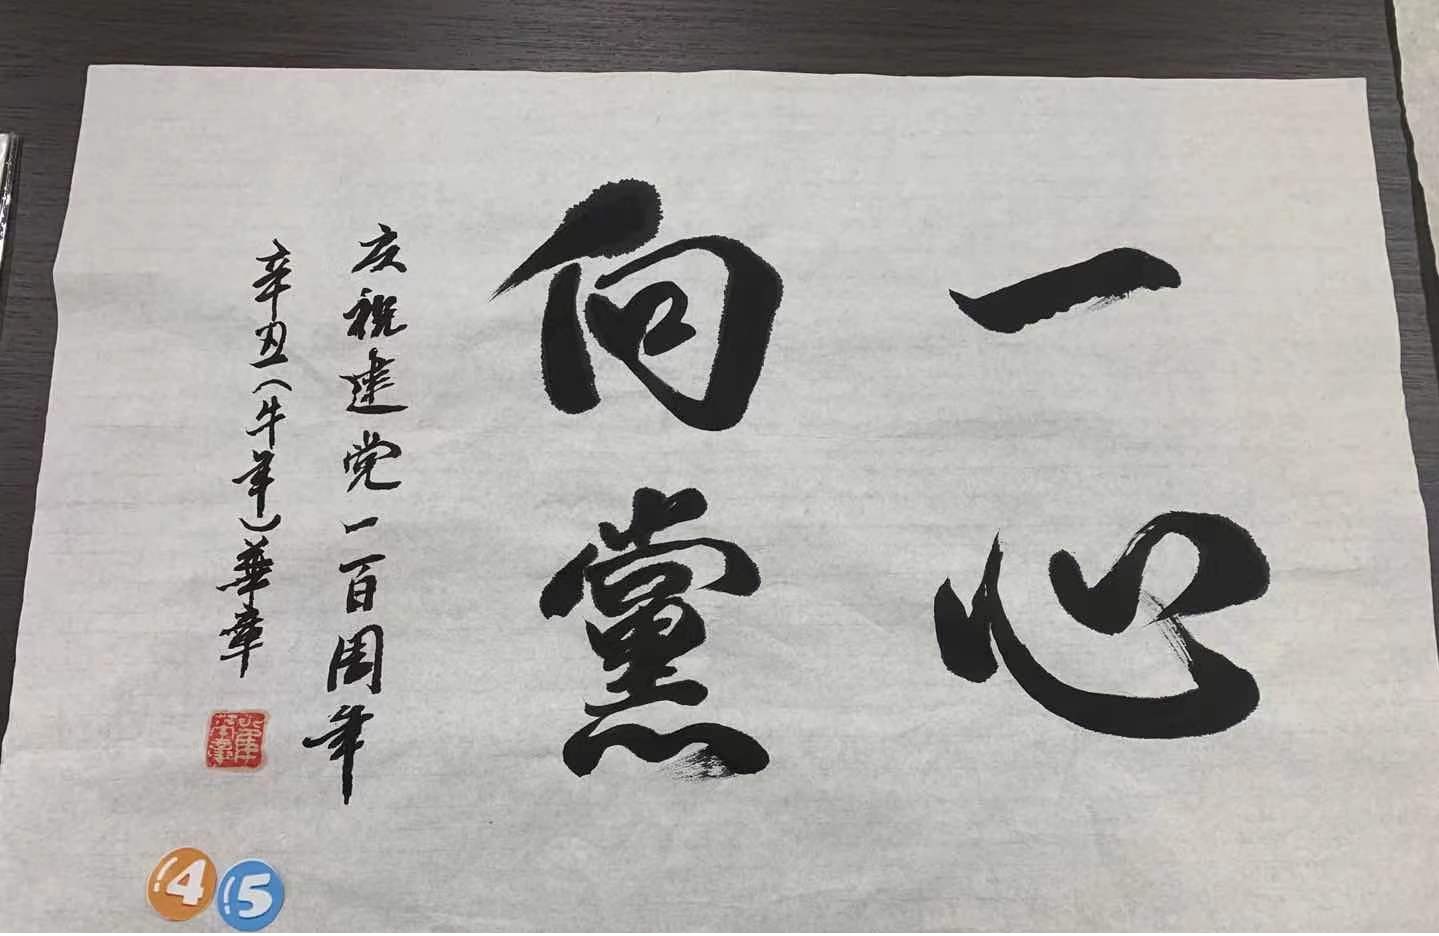 一心
向黨
庆祝建党一百周年
辛丑(牛年)華章
14
15